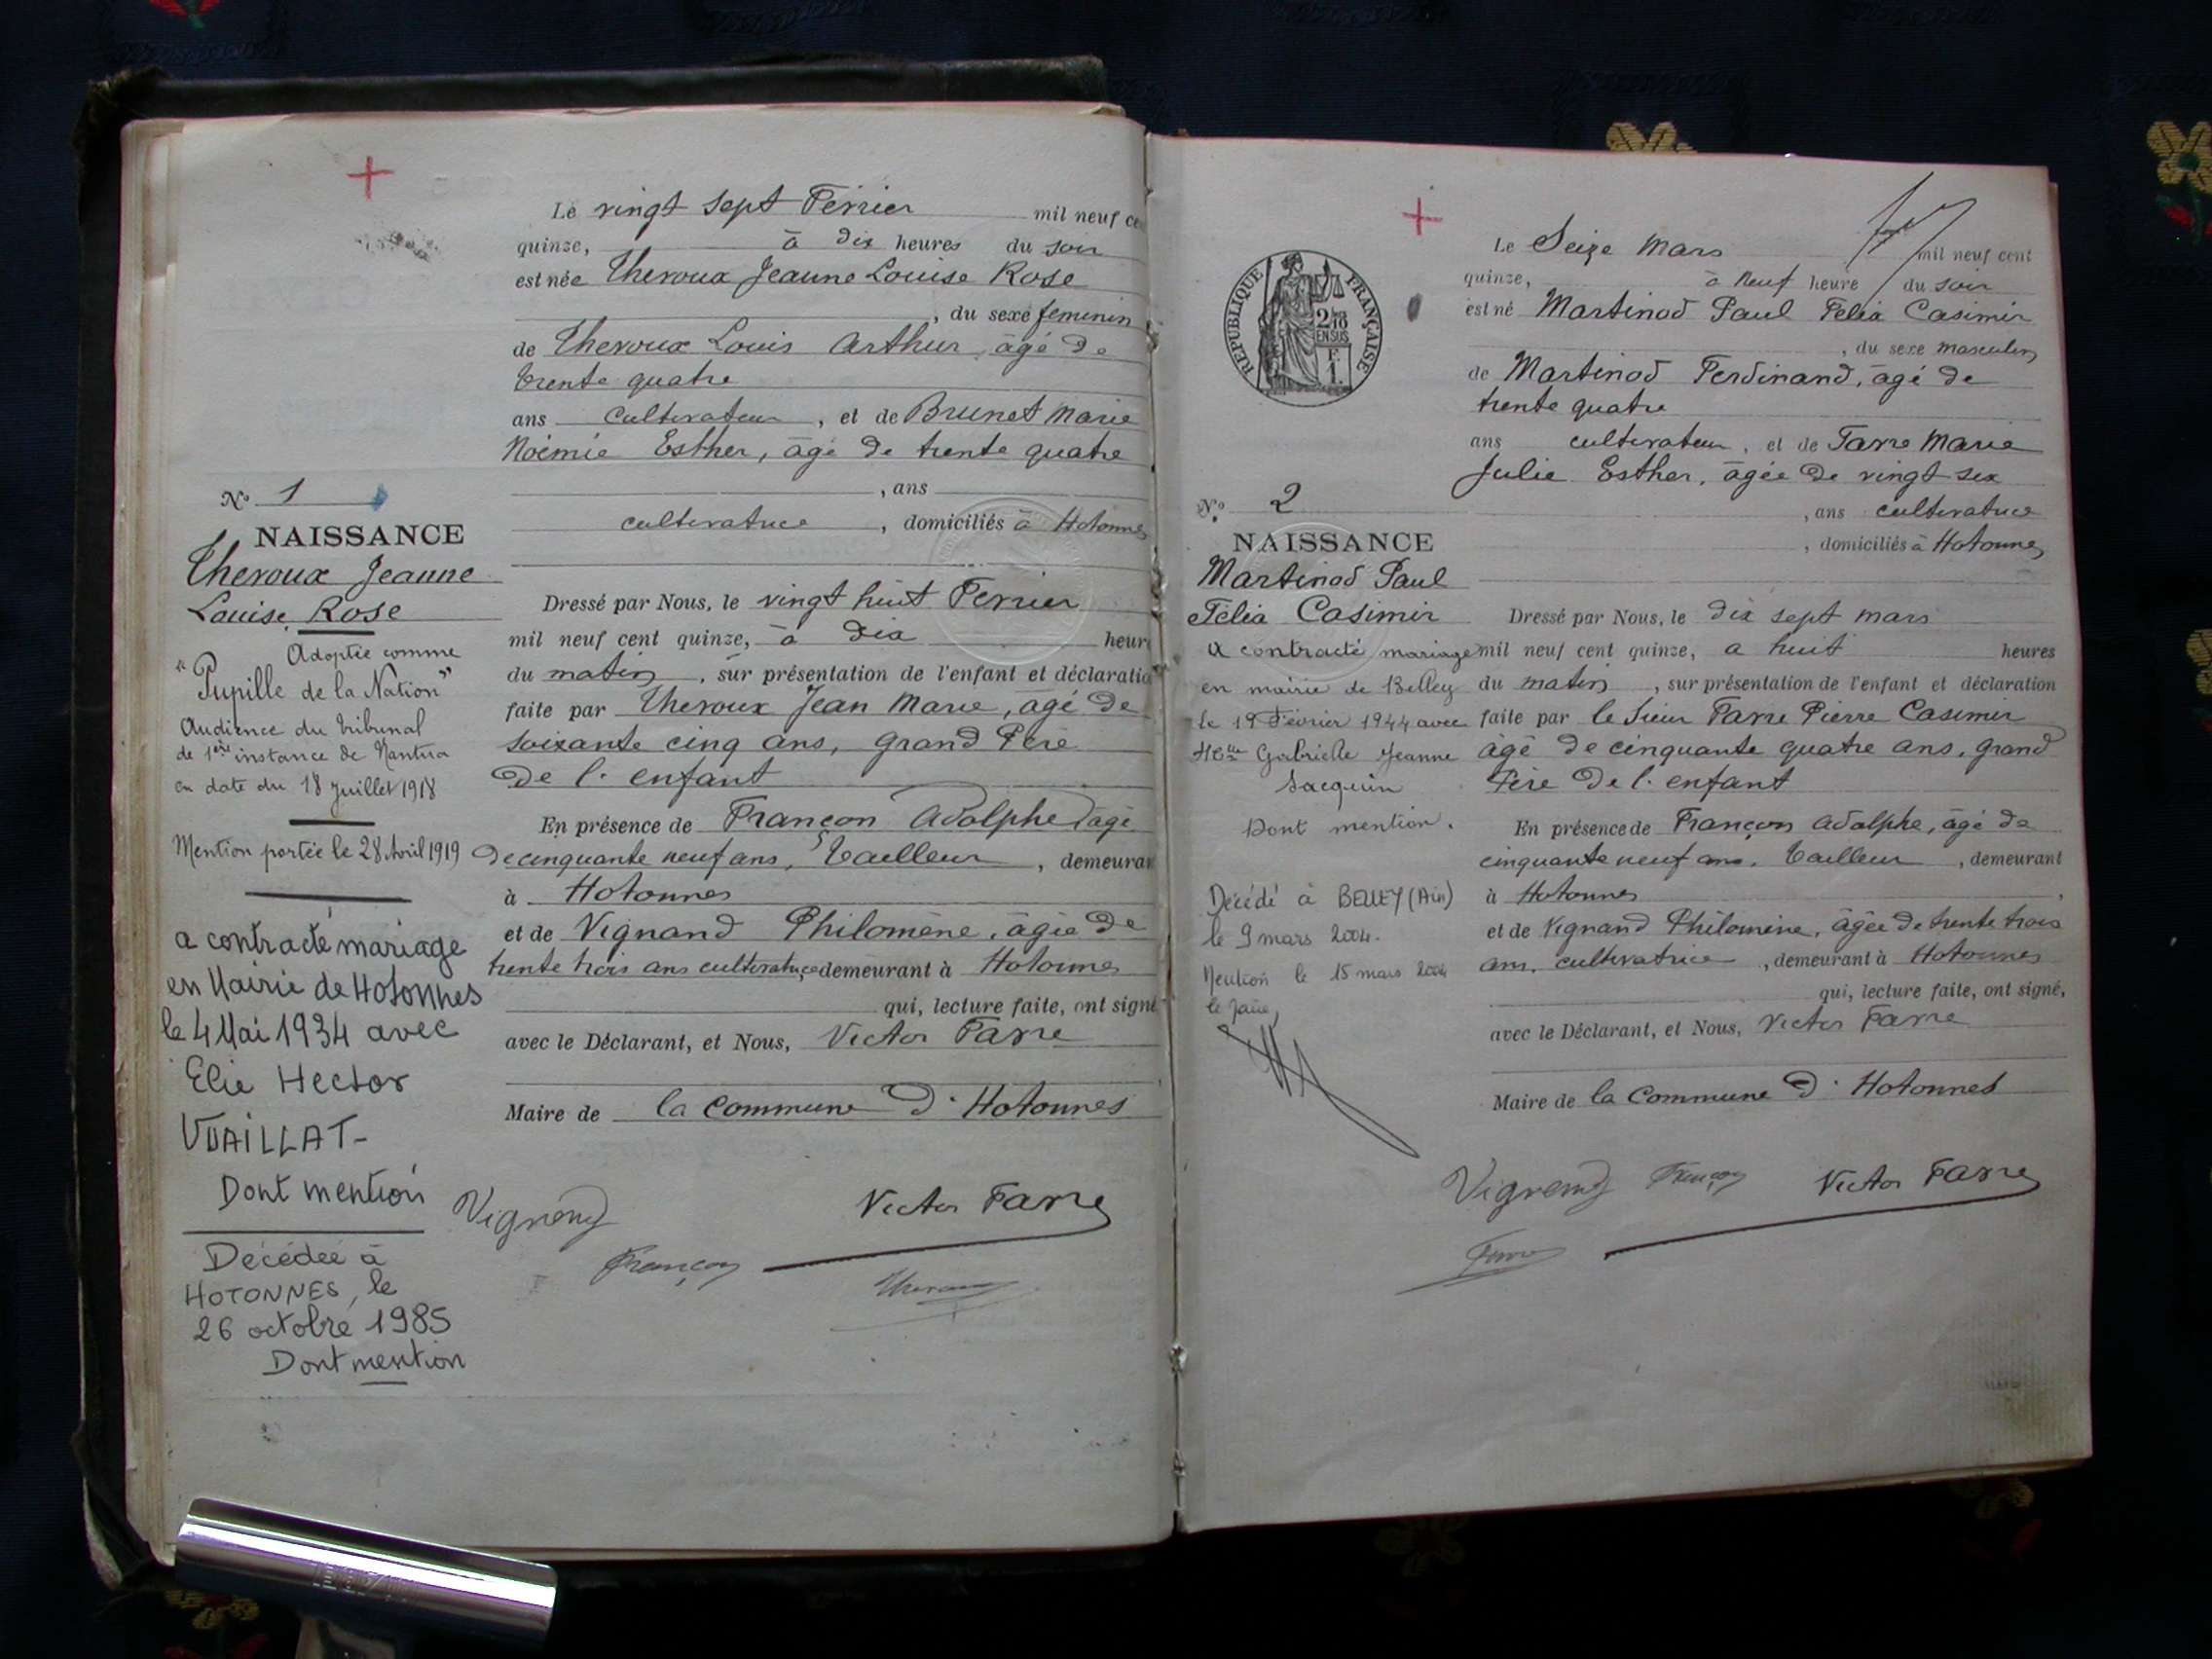 Le vingt sept Février mil neuf ce
quinze, à dix heures du soir
est née Theroux Jeanne Louise Rose
, du sexe feminin
de Theroux Louis Arthur, âgé de
trente quatre
ans cultivateur, et de Brunet Marie
Noémie Esther, âgé de trente quatre
, ans
cultivatrice, domiciliés à Hotonnes
N° 1
NAISSANCE
Theroux Jeanne
Louise Rose
Adoptée comme
"Pupille de la Nation"
Audience du tribunal
de 1ère instance de Nantua
en date du 18 Juillet 1918
Mention portée le 28 Avril 1919
a contracté mariage
en Mairie de Hotonnes
le 4 Mai 1934 avec
Elie Hector
VUAILLAT-
Dont mention
Décédée à
HOTONNES, le
26 octobre 1985
Dont mention
Dressé par Nous, le vingt huit Février
mil neuf cent quinze, à dix heur
du matin, sur présentation de l'enfant et déclaratio
faite par Theroux Jean Marie, âgé de
soixante cinq ans, grand Père
de l'enfant
En présence de Françon Adolphe âgé
de cinquante neuf ans, tailleur, demeuran
à Hotonnes
et de Vignand Philomène, âgée de
trente trois ans cultivatrice demeurant à Hotonnes
qui, lecture faite, ont signé
avec le Déclarant, et Nous, Victor Favre
Maire de la Commune d'Hotonnes
Vignand
Victor Favre
Françon
Theroux
REPUBLIQUE FRANÇAISE
2/10
EN SUS
1 F.
Le Seize Mars mil neuf cent
quinze, à Neuf heure du soir
est né Martinod Paul Felix Casimir
, du sexe masculin
de Martinod Ferdinand, âgé de
trente quatre
ans cultivateur, et de Favre Marie
Julie Esther, âgée de vingt six
, ans cultivatrice
, domiciliés à Hotonnes
N° 2
NAISSANCE
Martinod Paul
Félix Casimir
a contracté mariage
en mairie de Belley
le 19 Février 1944 avec
Gabrielle Jeanne
Jacquin
Dont mention.
Décédé à BELLEY (Ain)
le 9 mars 2004.
Mention le 15 mars 2004
Dressé par Nous, le dix sept mars
mil neuf cent quinze, a huit heures
du matin, sur présentation de l'enfant et déclaration
faite par le Sieur Favre Pierre Casimir
âgé de cinquante quatre ans, grand
Père de l'enfant
En présence de Françon Adolphe, âgé de
cinquante neuf ans, tailleur, demeurant
à Hotonnes,
et de Vignand Philomène, âgée de trente trois
ans, cultivatrice, demeurant à Hotonnes
qui, lecture faite, ont signé,
avec le Déclarant, et Nous, Victor Favre
Maire de la Commune d'Hotonnes
Vignand Françon Victor Favre
Favre